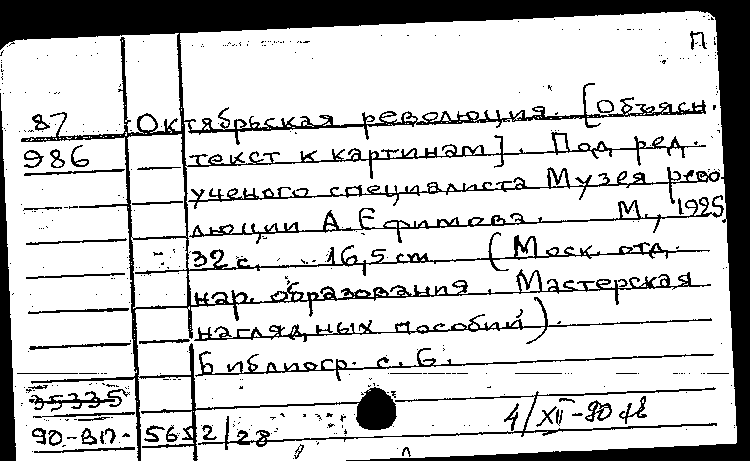 П
87 Октябрьская революция. [Объясн.
986 текст к картинам]. Под ред.
ученого специалиста Музея рево-
люции А. Ефимова. М., 1925
32 с. 16,5 cm. (Моск. отд.
нар. образования. Мастерская
наглядных пособий).
Библиогр. с. 6.
35335
90-ВП. 5652/28 4/XII-90